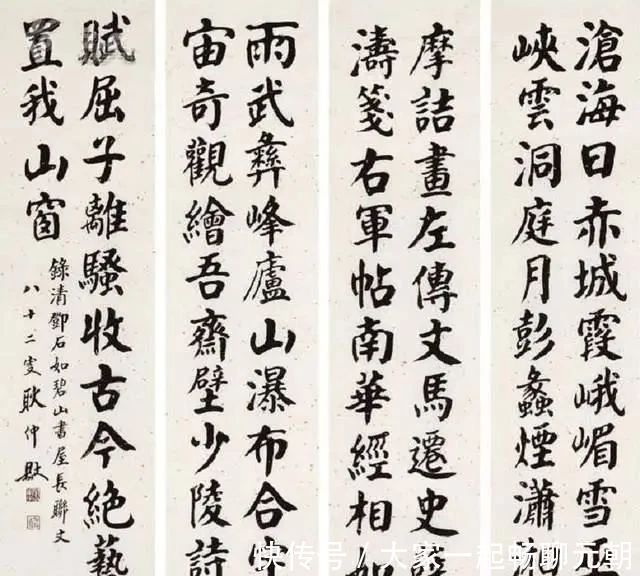 滄海日赤城霞峨嵋雪
峽雲洞庭月彭蠡煙瀟
摩詰畫左傳文馬遷史
濤箋右軍帖南華經相如
雨武彝峰廬山瀑布合宇
宙奇觀繪吾齋壁少陵詩
賦屈子離騷收古今絕藝
置我山窗
錄清鄧石如碧山書屋長聯文
八十二叟耿仲敭
快传号/大家一起畅聊元朝